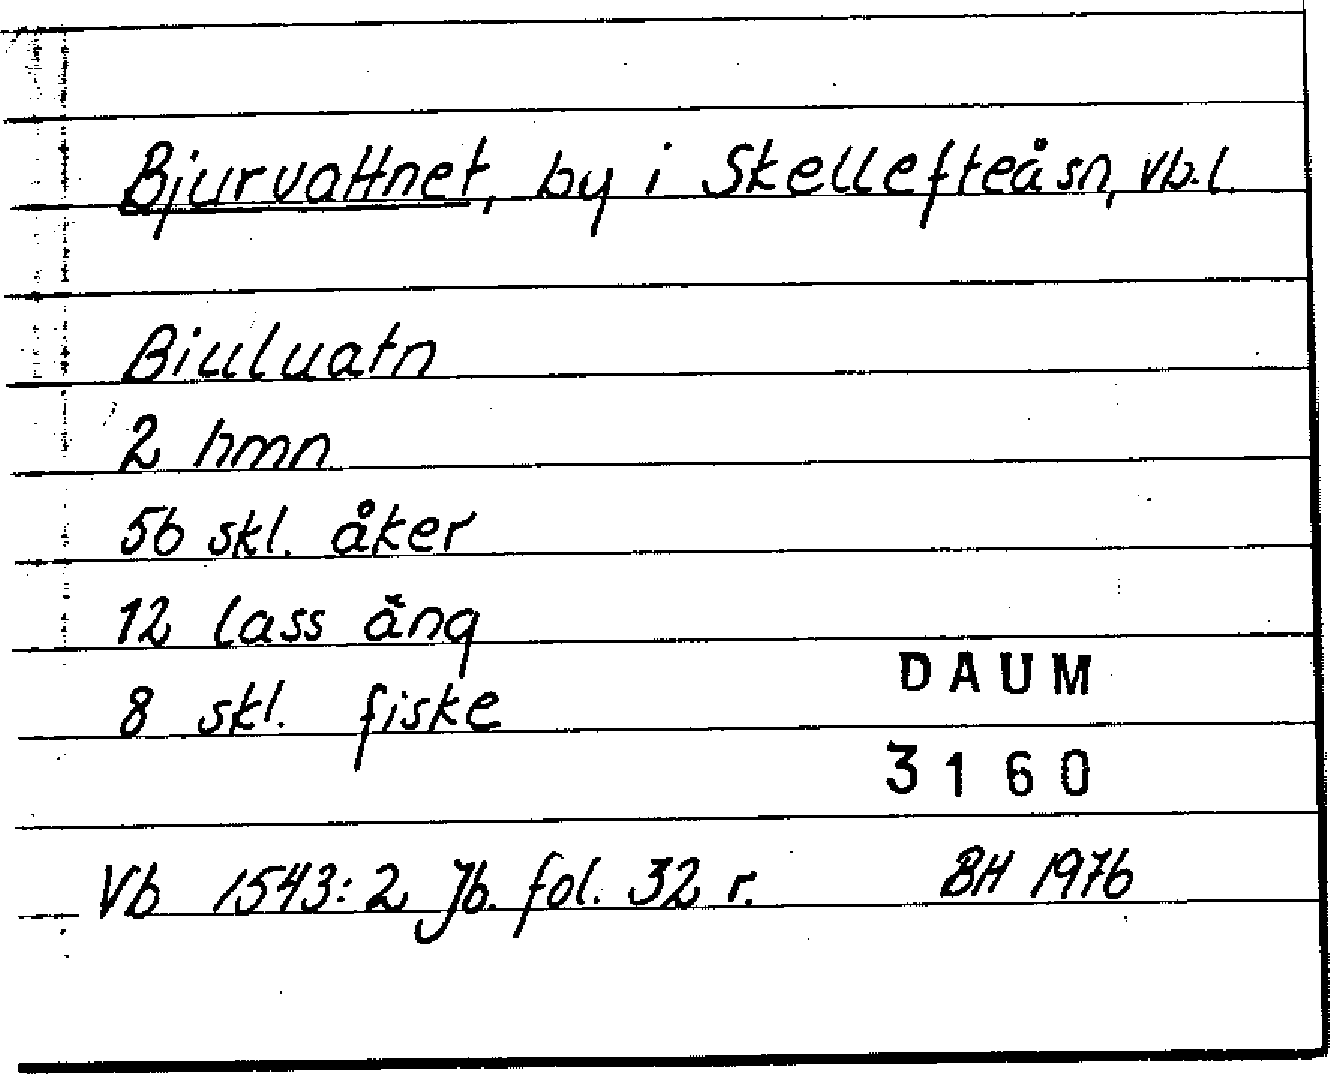 Bjurvattnet, by i Skellefteå sn, Vb.l.
Biuluatn
2 hmn
56 skl. åker
12 lass äng
8 skl. fiske
DAUM
3160
Vb 1543:2 Jb. fol. 32 r. BH 1976